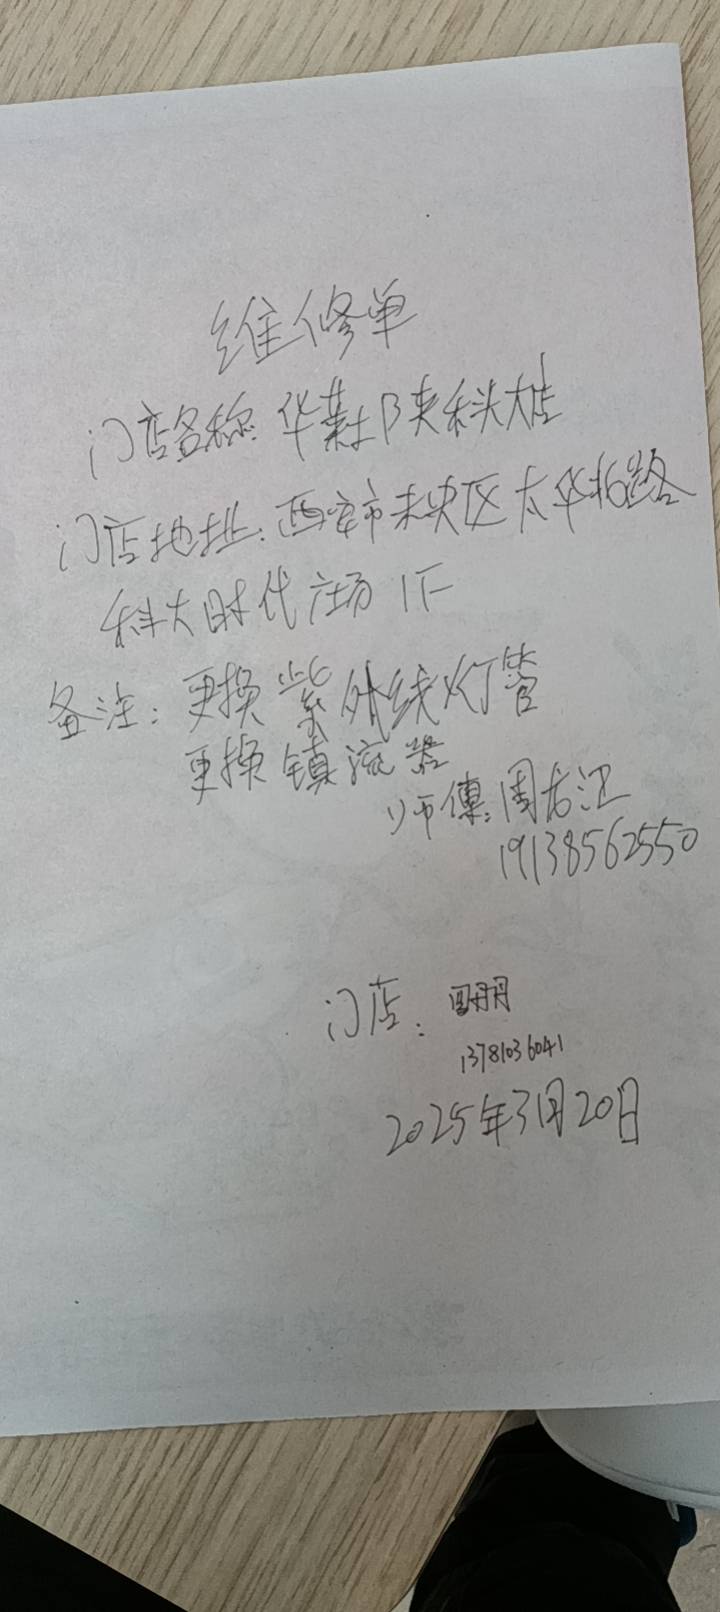 维修单
门店名称: 华莱士陕科大店
门店地址: 西安市未央区太华北路
科大时代广场1F
备注: 更换紫外线灯管
更换镇流器
师傅: 周
19138562550
门店:
13781036041
2025年3月20日